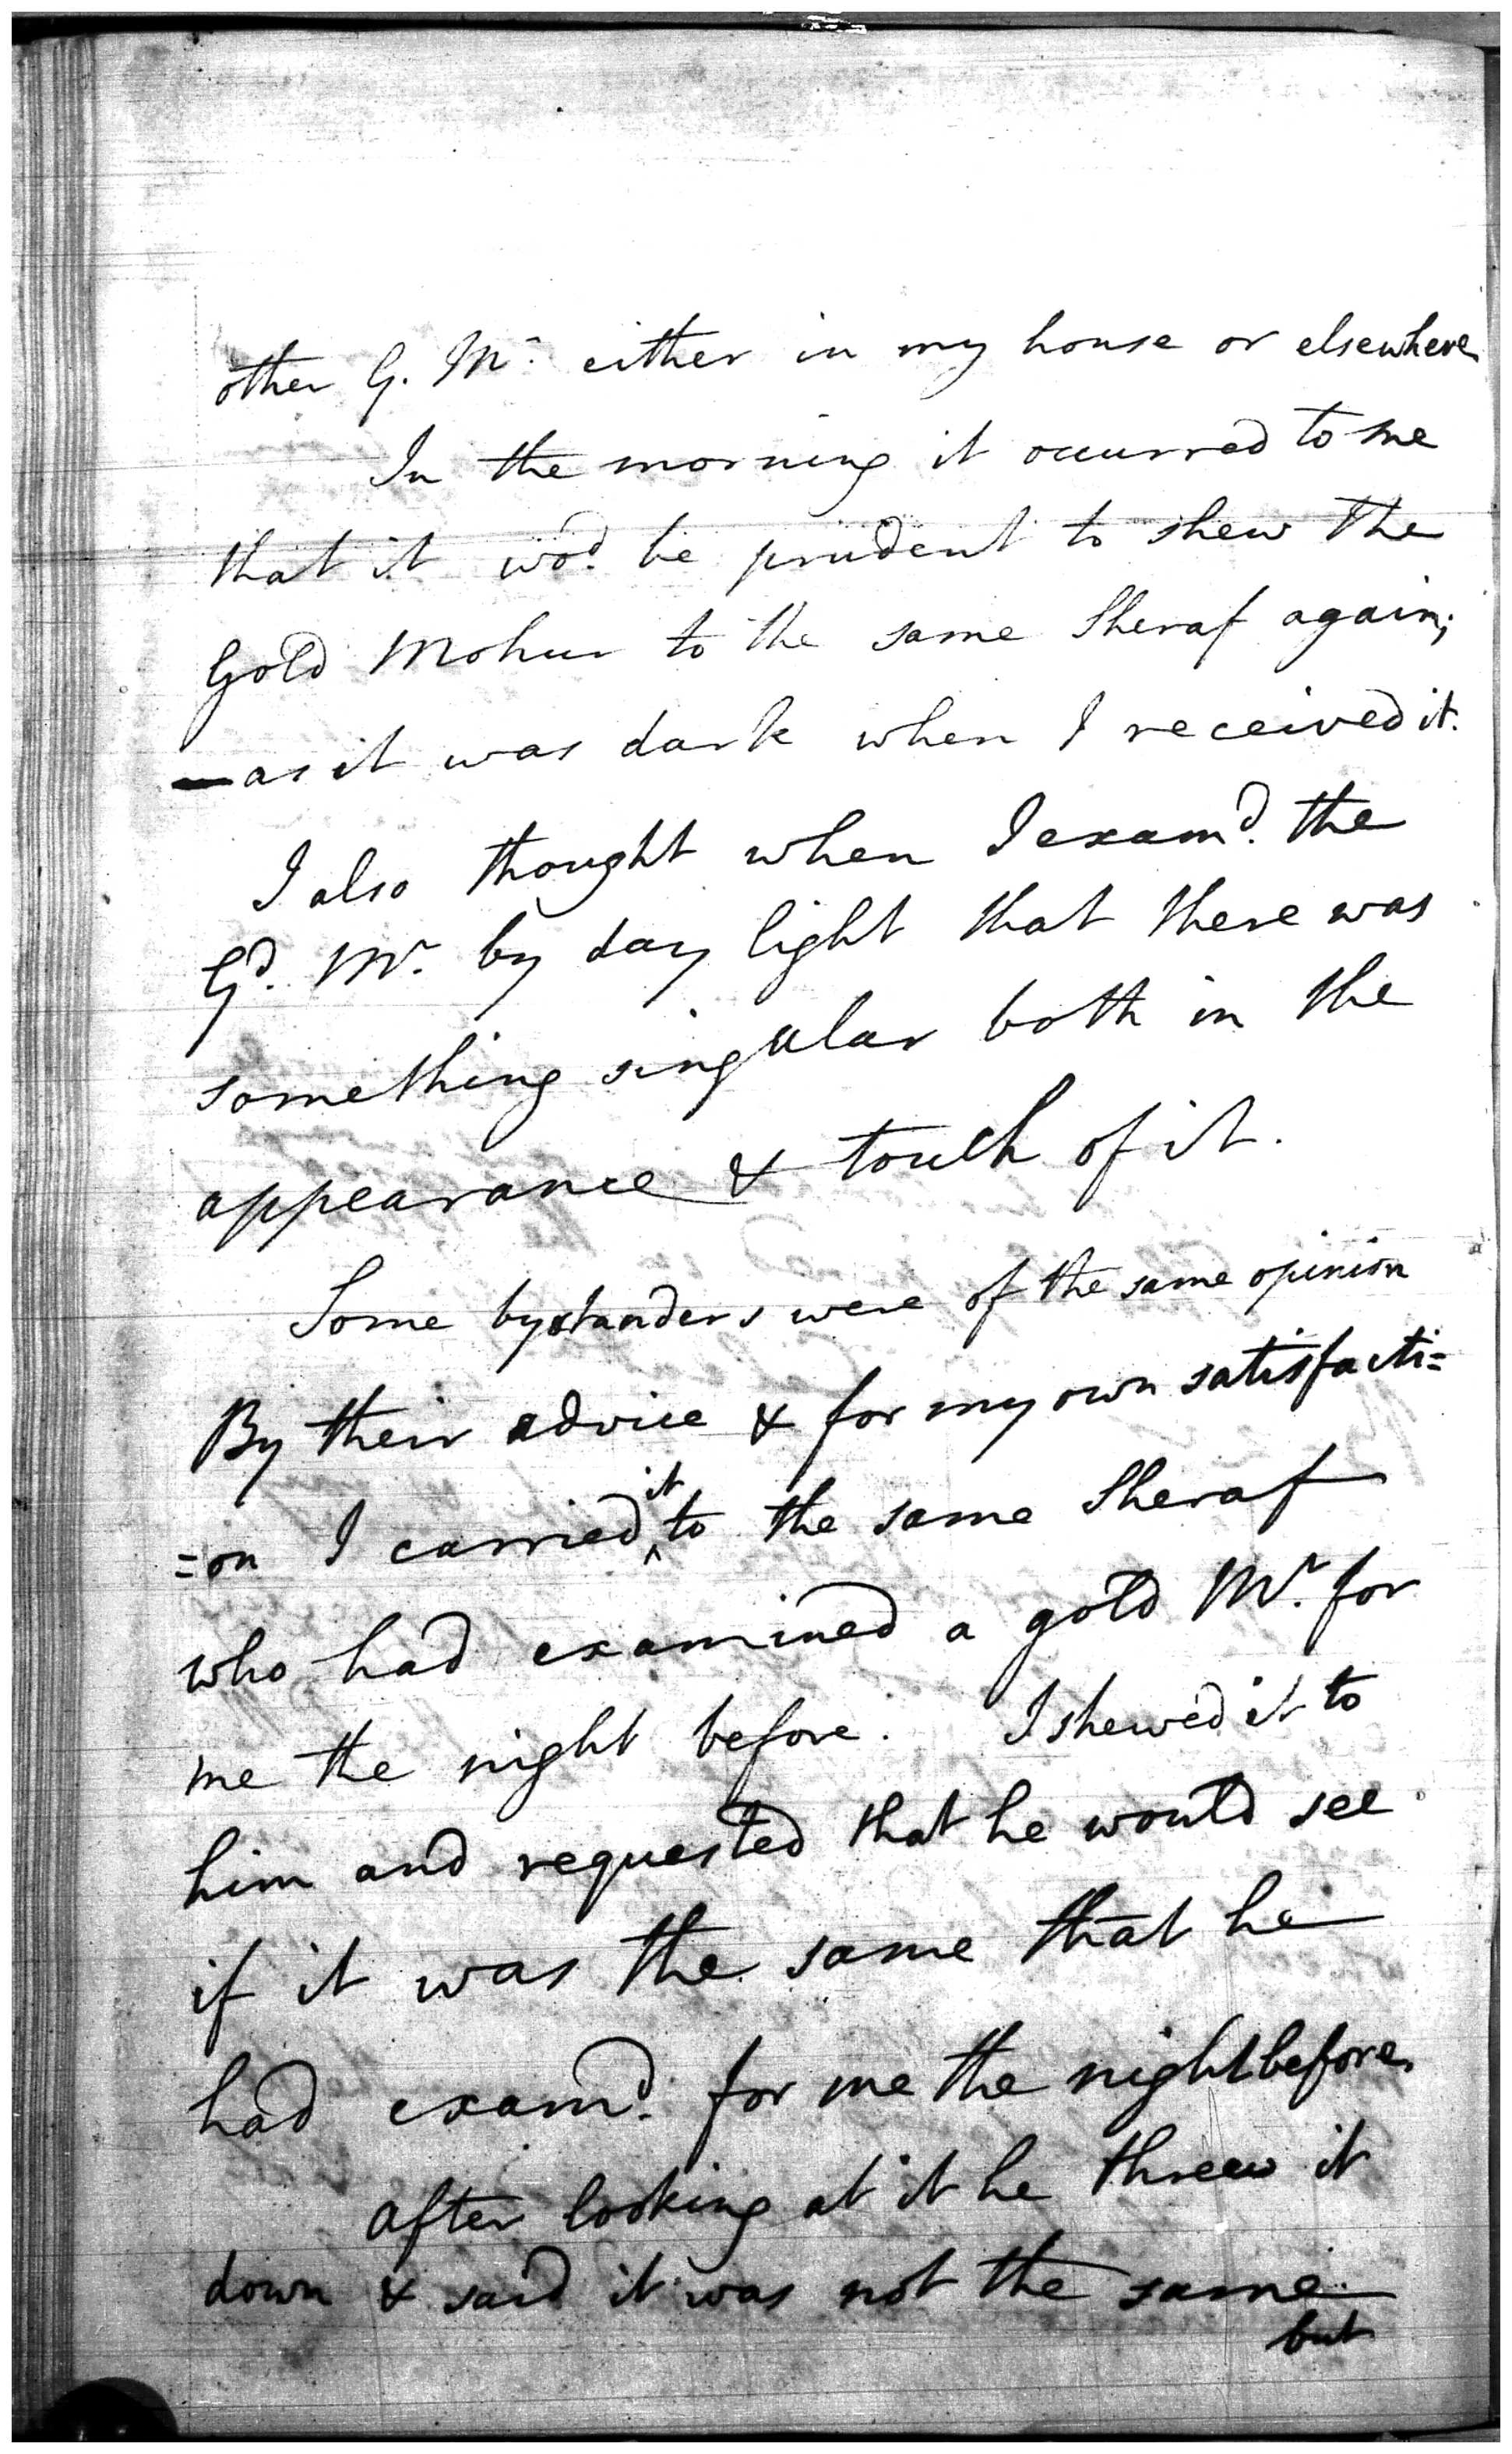 other G. Mr. either in my house or elsewhere
In the morning it occurred to me
that it wod. be prudent to shew the
Gold Mohur to the same Sheraf again;
—as it was dark when I received it.
I also thought when I examd. the
Gd. Mr. by day light that there was
something singular both in the
appearance & touch of it.
Some bystanders were of the same opinion
By their advice & for my own satisfacti=
=on I carried it to the same Sheraf
who had examined a gold Mr. for
me the night before. I shewed it to
him and requested that he would see
if it was the same that he
had examd. for me the night before.
after looking at it he threw it
down & said it was not the same
but